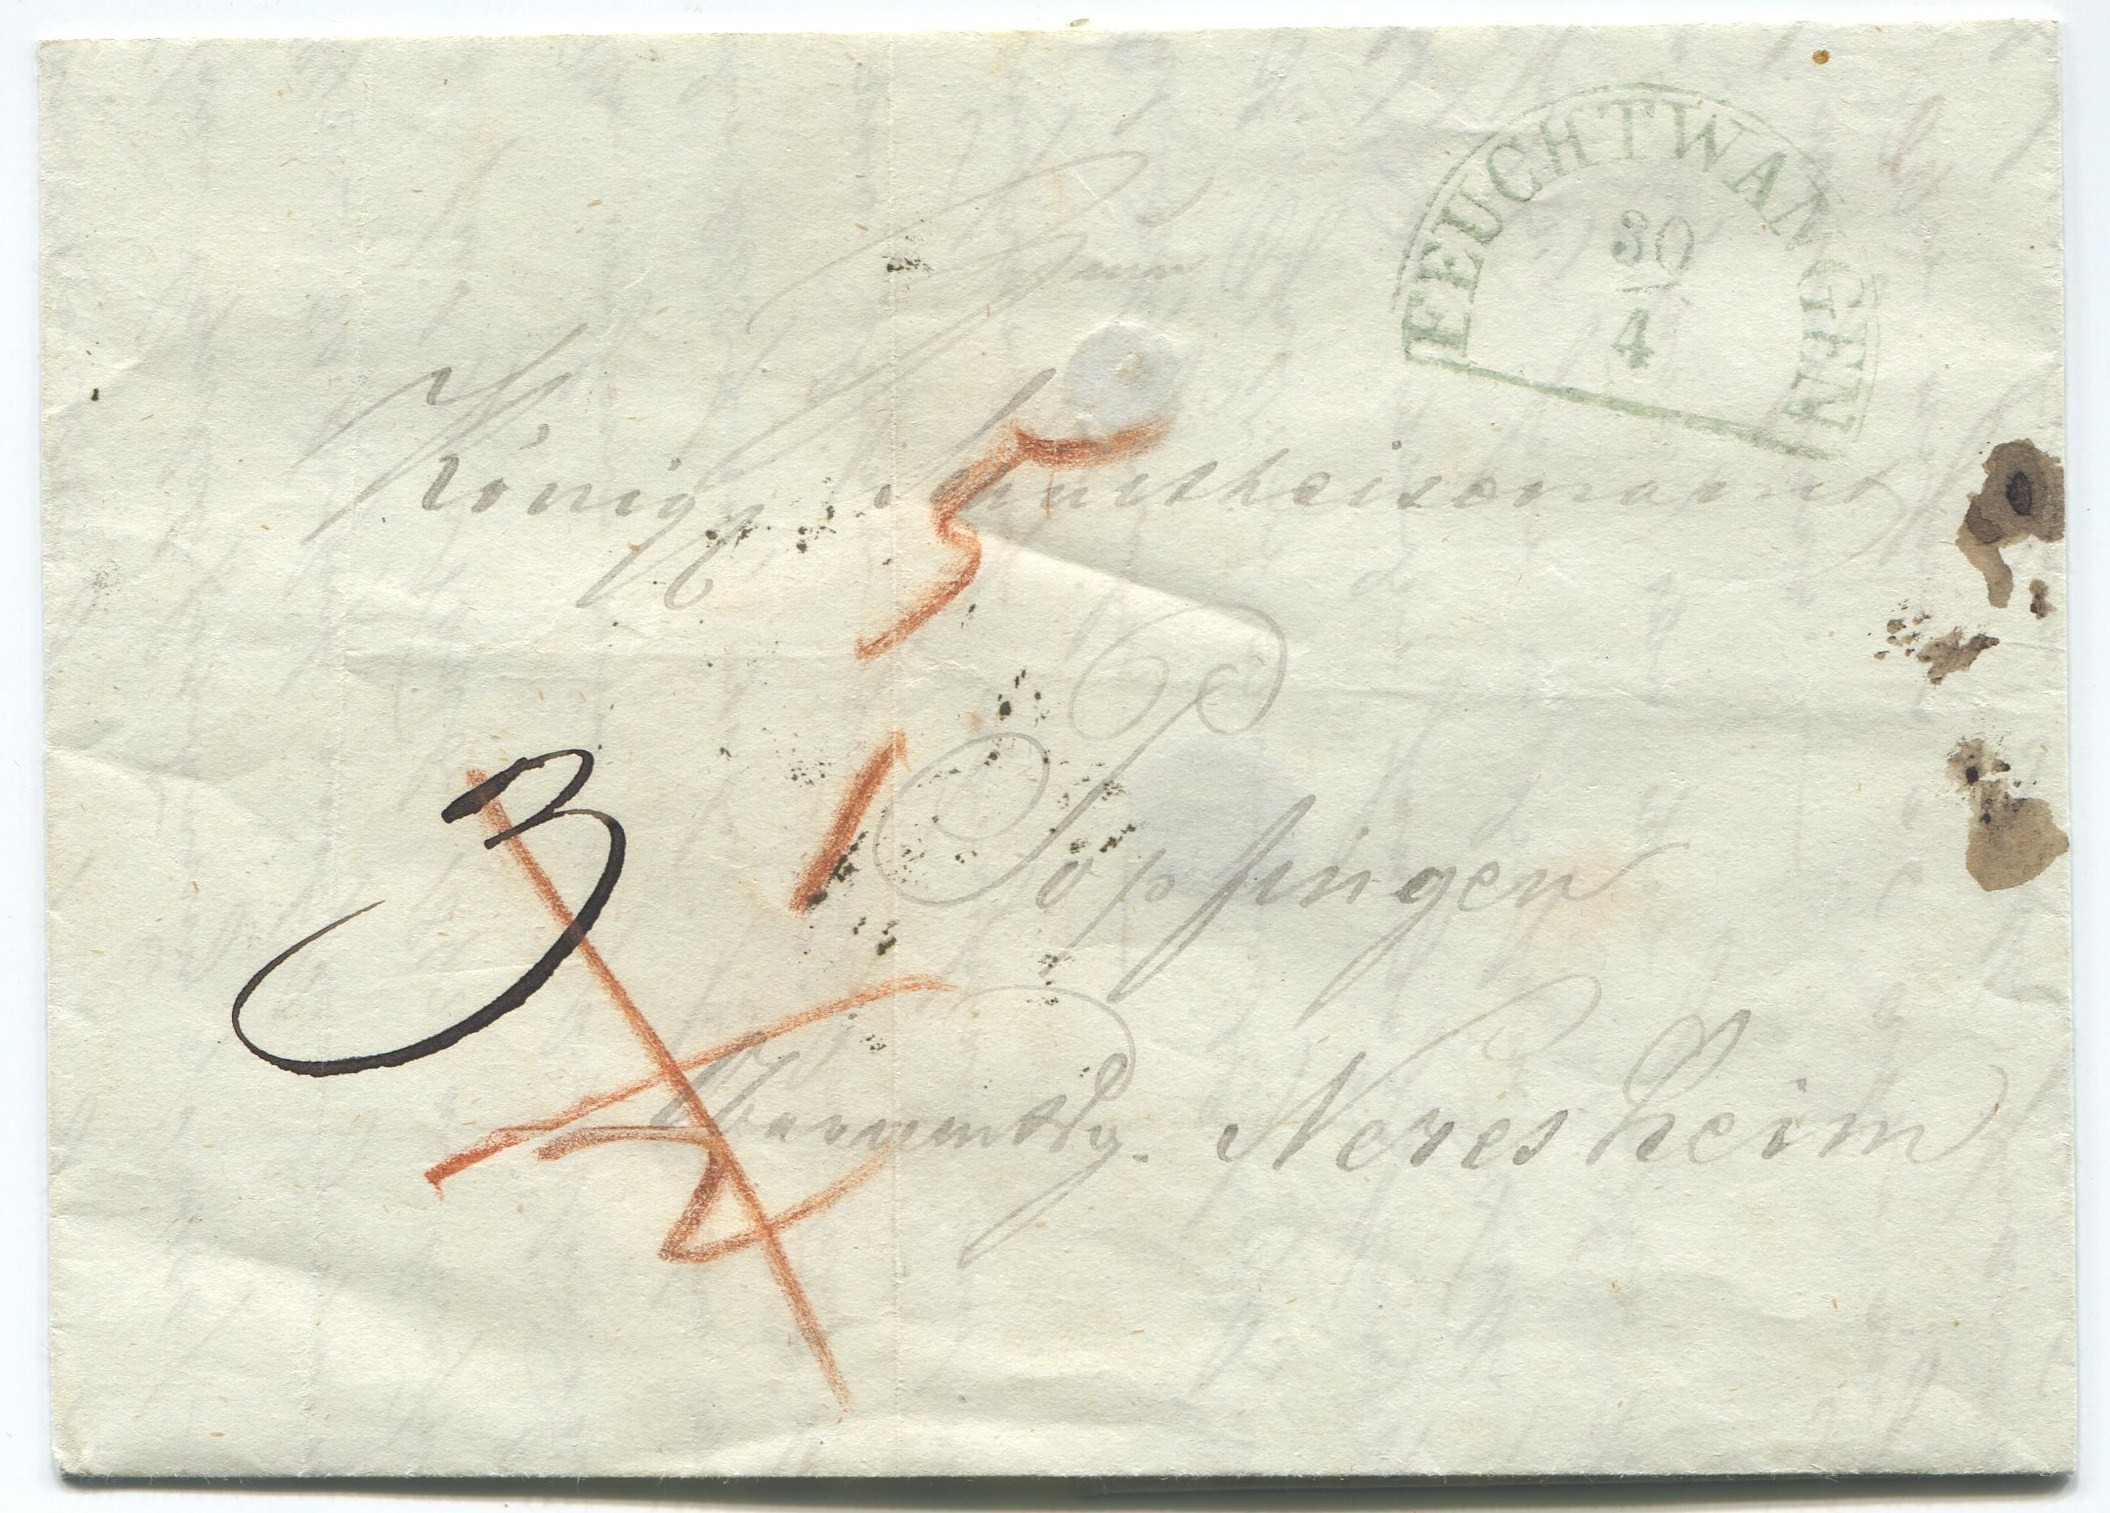 FEUCHTWANGEN
30
4
König Schultheisenamt
5
1
3
Bopfingen
Oberamts Neresheim
2